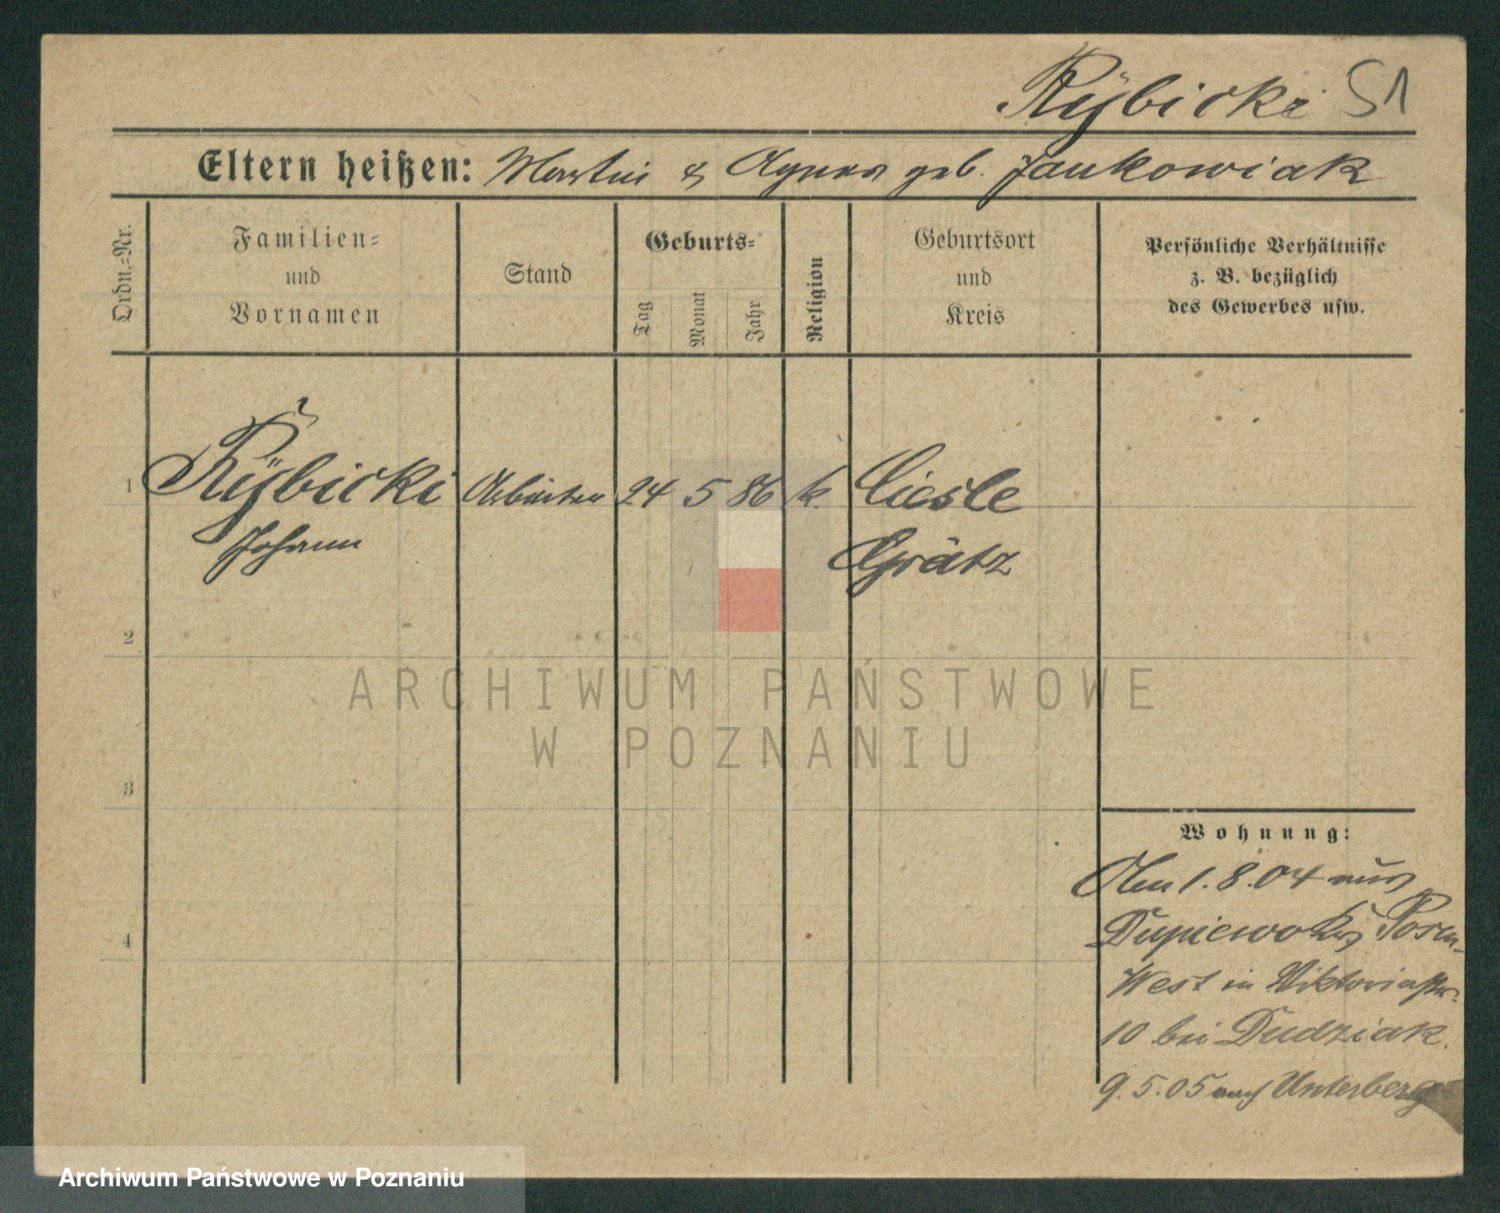 Rÿbicki 51
Eltern heißen: Martin & Agnes geb. Jankowiak
Ordn.-Nr.
Familien-
und
Vornamen
Stand
Geburts-
Tag
Monat
Jahr
Religion
Geburtsort
und
Kreis
Persönliche Verhältnisse
z. B. bezüglich
des Gewerbes usw.
1 Rÿbicki Arbeiter 24 5 86 k. Ciesle
Johann Grätz
2
ARCHIWUM PAŃSTWOWE
W POZNANIU
3
Wohnung:
Am 1.8.04 aus
Dupiewo Krs Posen-
West in Viktoriastr.
4
10 bei Dudziak.
9.5.05 nach Unterberg
Archiwum Państwowe w Poznaniu